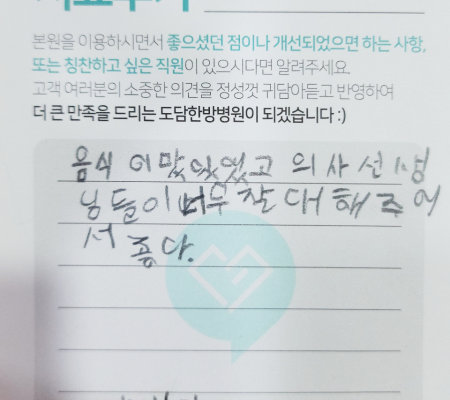 본원을 이용하시면서 좋으셨던 점이나 개선되었으면 하는 사항,
또는 칭찬하고 싶은 직원이 있으시다면 알려주세요.
고객 여러분의 소중한 의견을 정성껏 귀담아듣고 반영하여
더 큰 만족을 드리는 도담한방병원이 되겠습니다 :)
음식이 맜있었고 의사선생
님들이 너무 잘 대해주어
서 좋다.